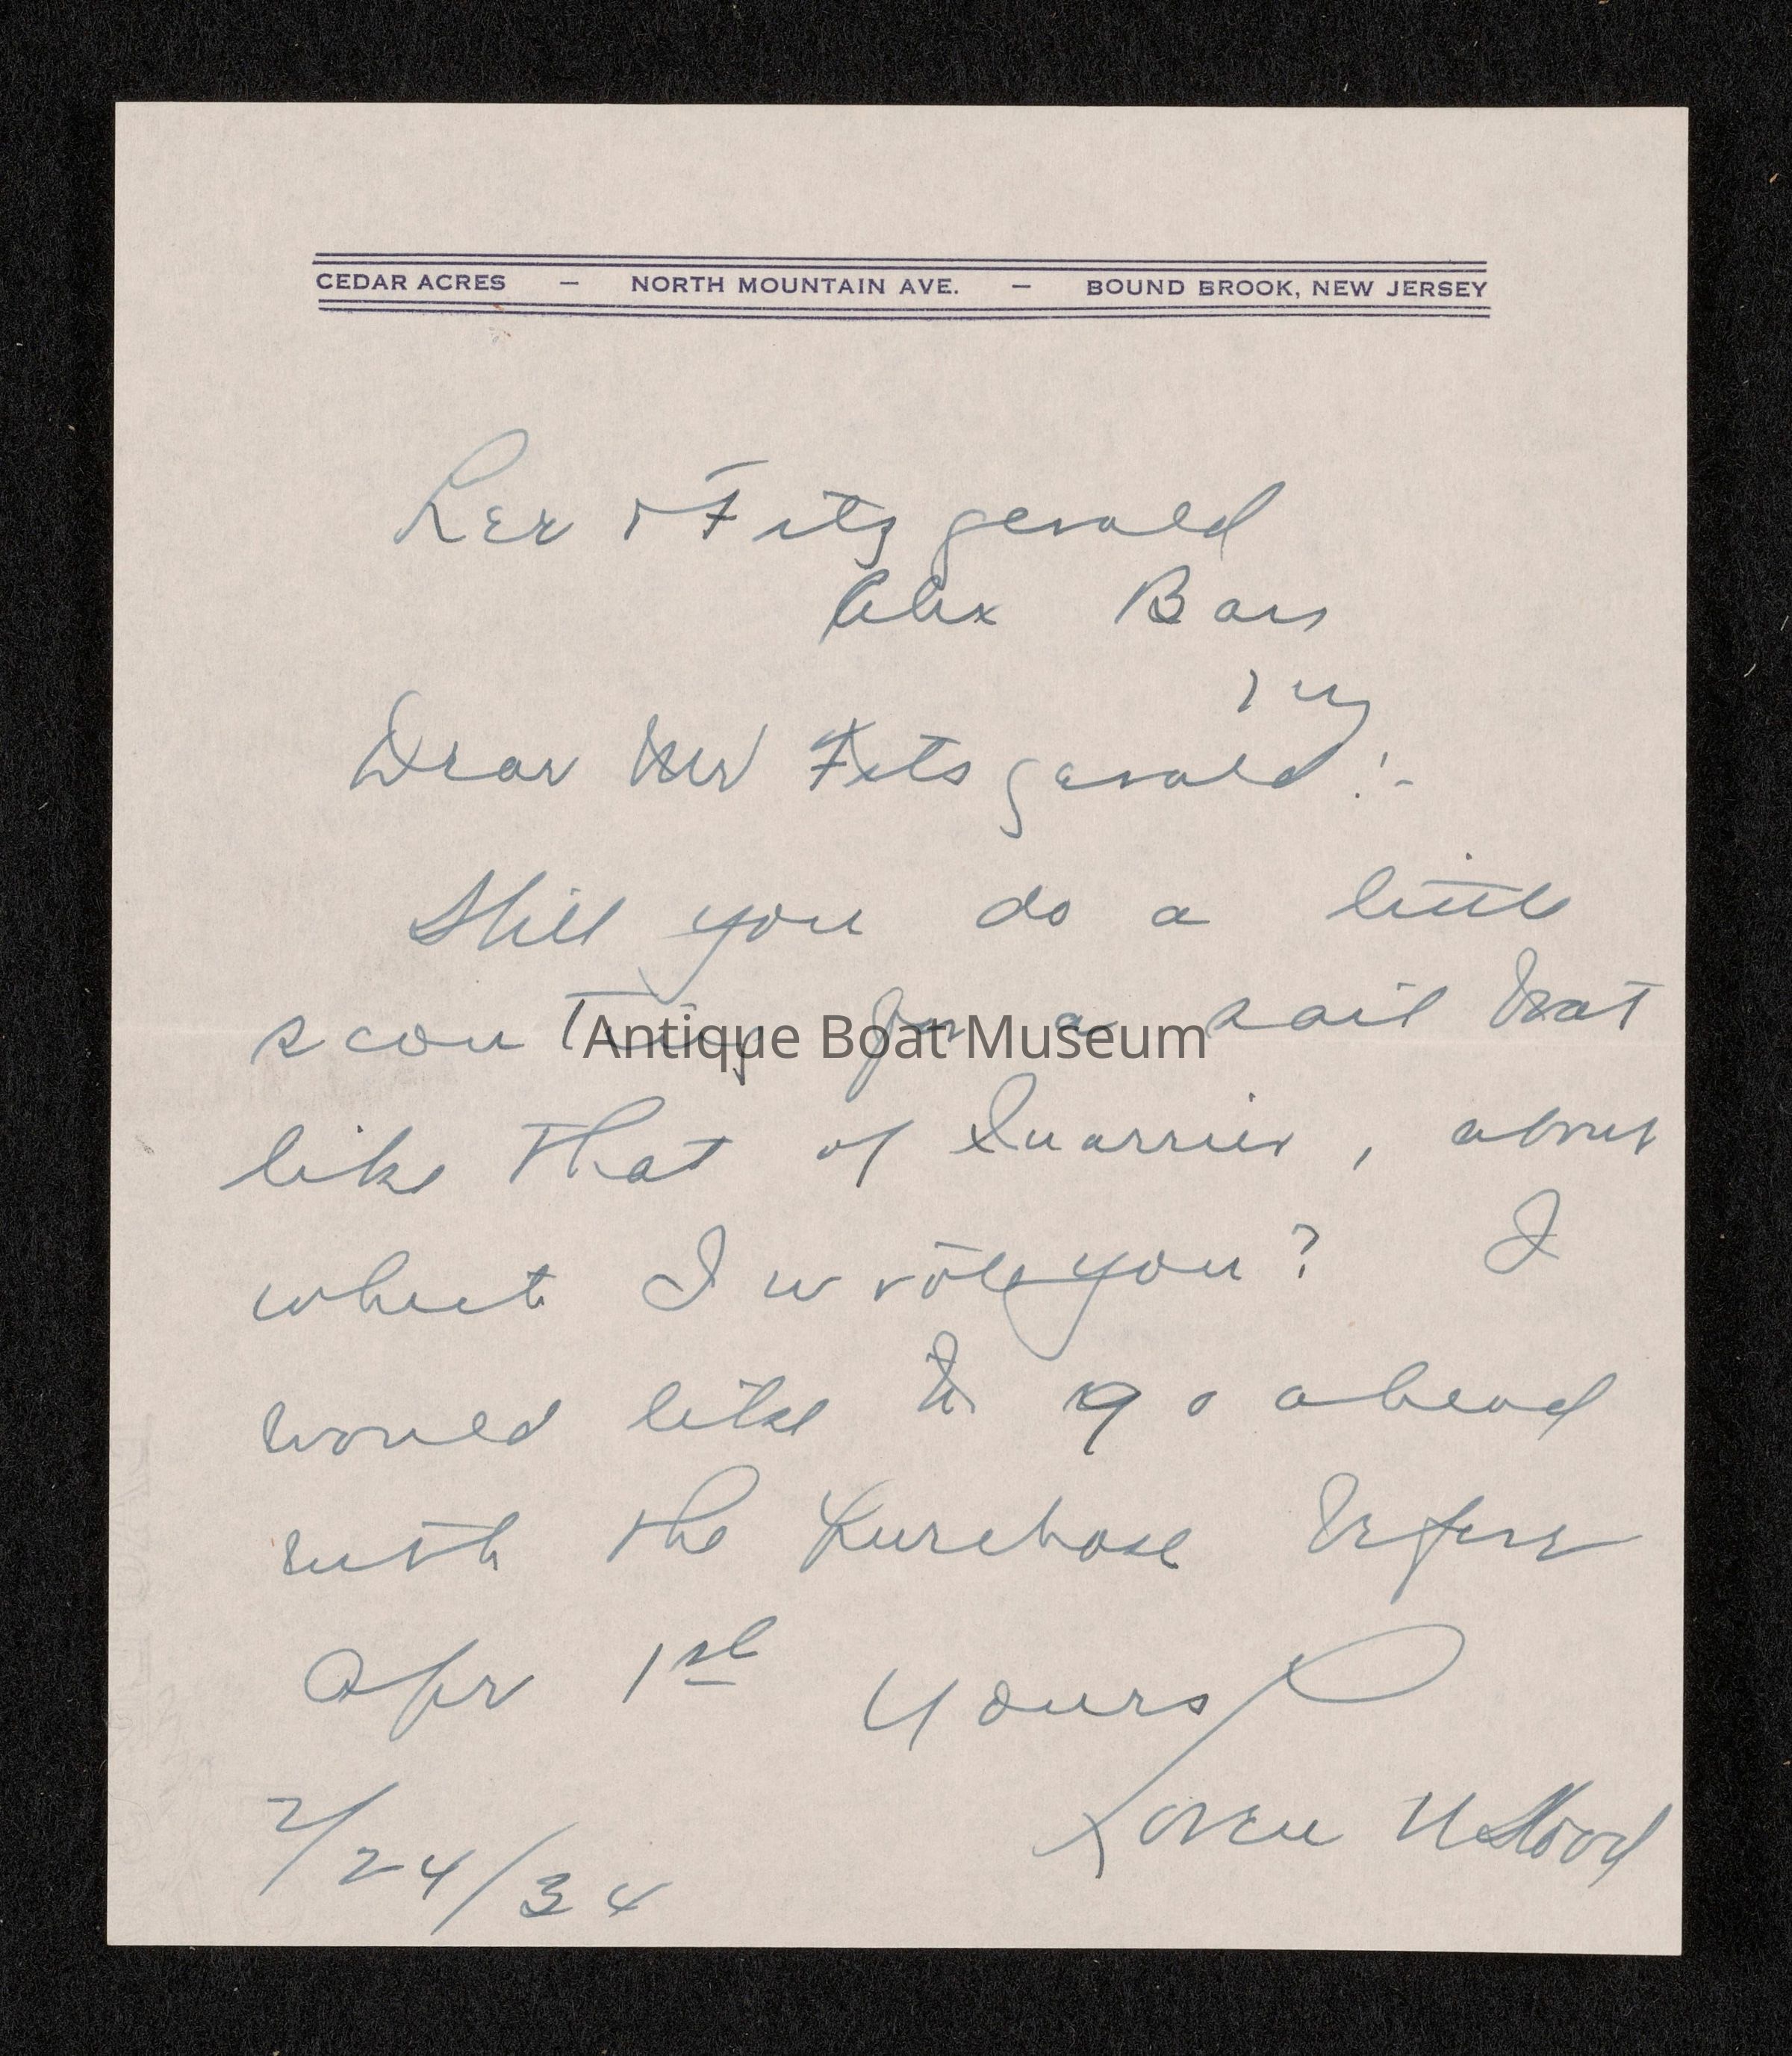 CEDAR ACRES — NORTH MOUNTAIN AVE. — BOUND BROOK, NEW JERSEY
& Fitzgerald
Alex Bay
NY
Dear Mr Fitzgerald:-
Will you do a little
scouting for a sail boat
like that of Quarrier, about
which I wrote you? I
would like to go ahead
with the purchase before
Apr 1st Yours
Loren N Wood
2/24/34
Antique Boat Museum